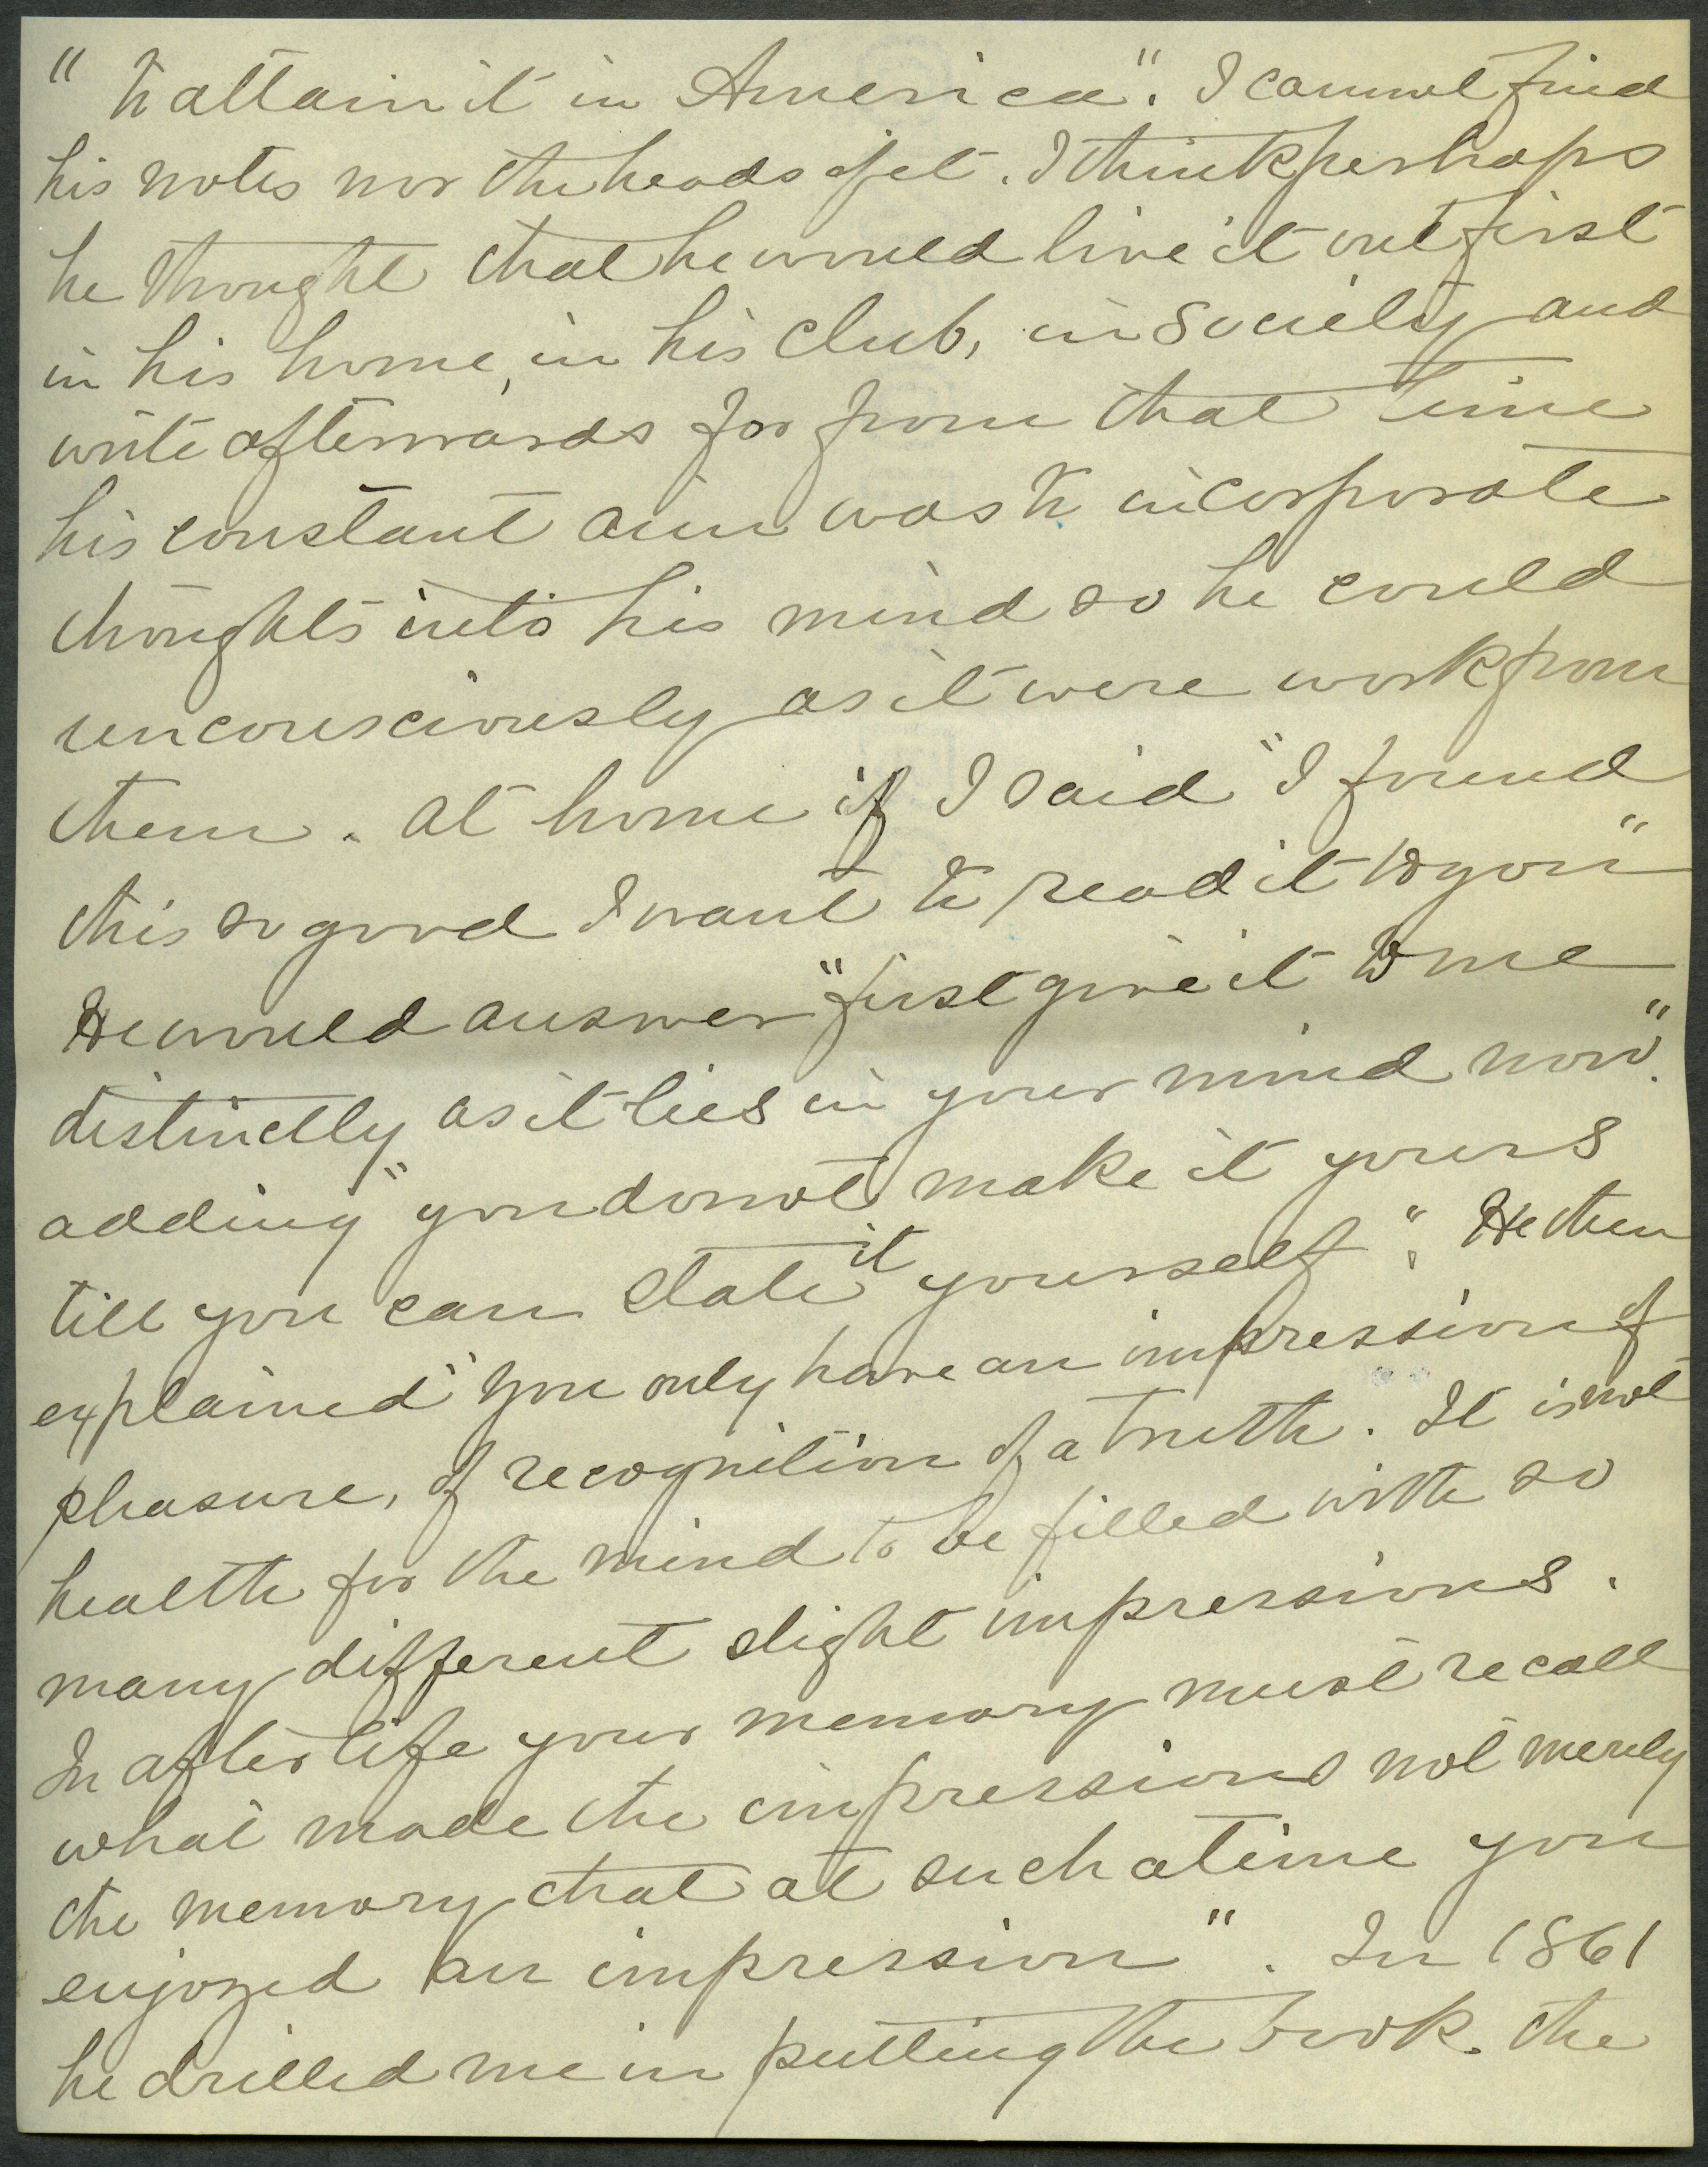 " to attain it in America". I cannot find
his notes nor the heads of it. I think perhaps
he thought that he would live it out first
in his home, in his club, in society and
write afterwards for from that time
his constant aim was to incorporate
thoughts into his mind so he could
unconsciously as it were work from
them. At home if I said "I found
this so good I want to read it to you"
He would answer "first give it to me
distinctly as it lies in your mind now".
adding "you do not make it yours
till you can state it yourself". He then
explained "you only have an impression of
pleasure, of recognition of a truth. It is not
health for the mind to be filled with so
many different slight impressions.
In after life your memory must recall
what made the impressions not merely
the memory that at such a time you
enjoyed an impression". In 1861
he drilled me in putting the book. the